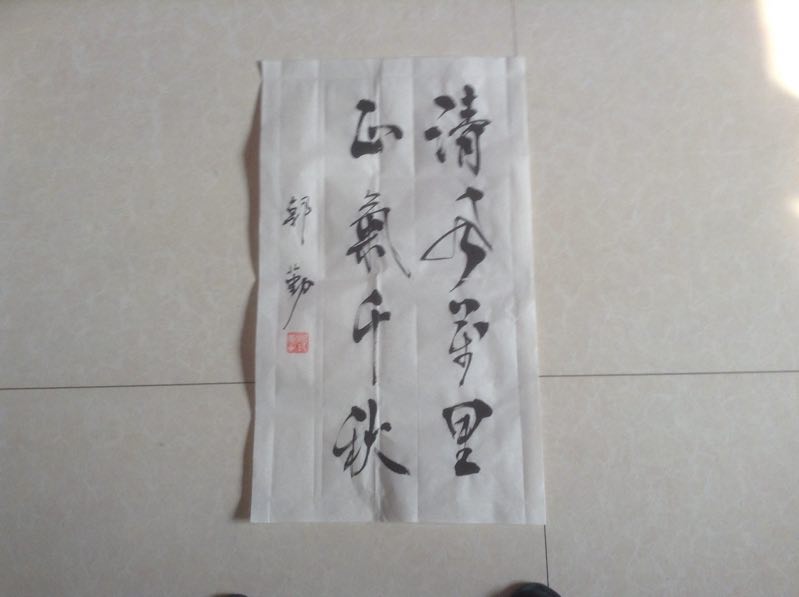 清 萬里
正氣千秋
郭勤